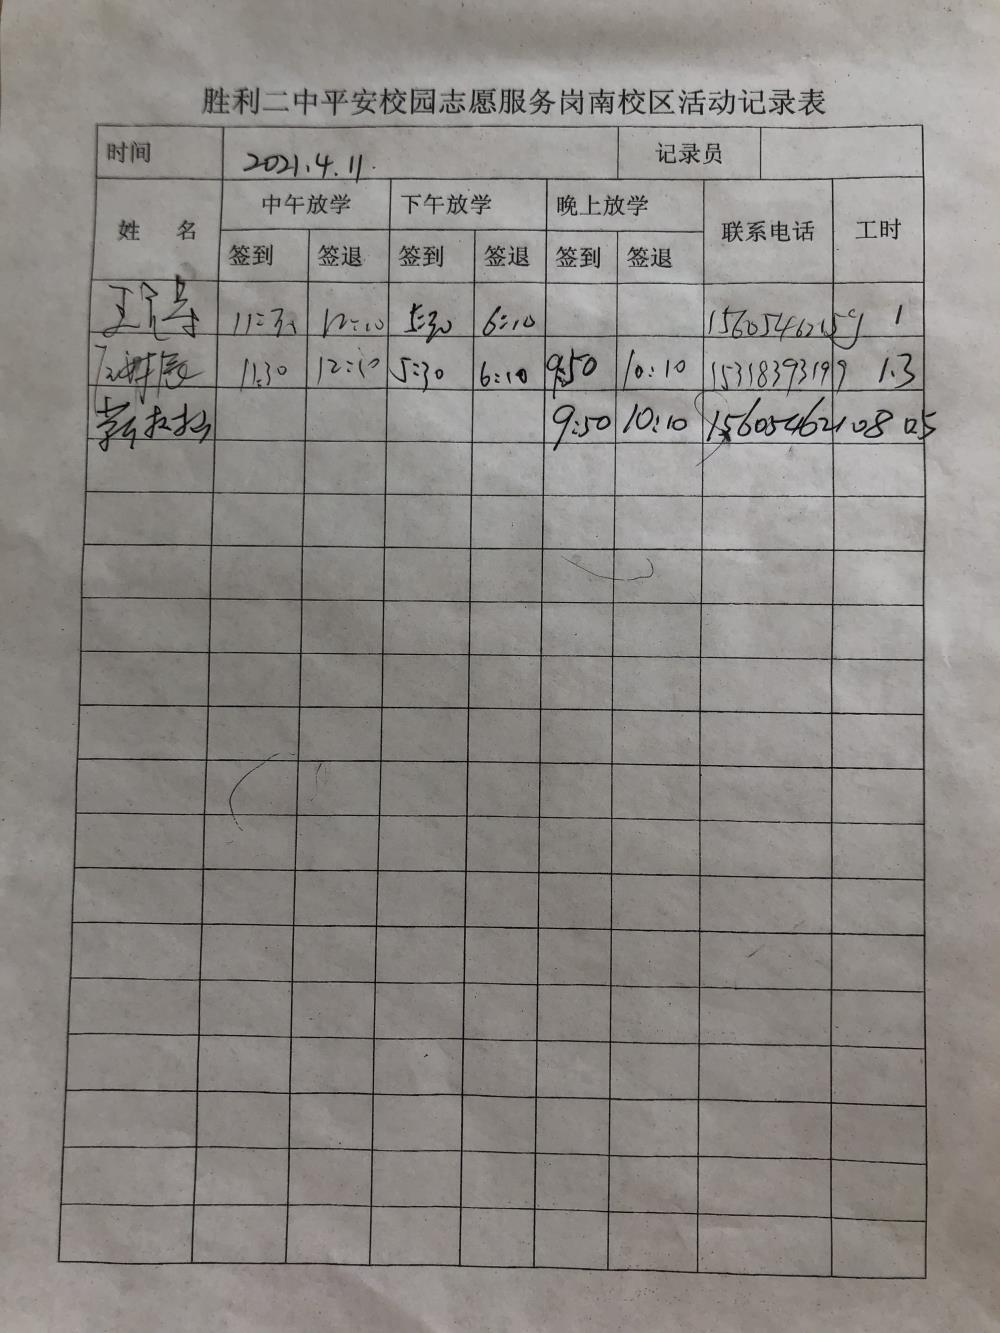 胜利二中平安校园志愿服务岗南校区活动记录表
时间 2021.4.11. 记录员
姓 名 中午放学 下午放学 晚上放学 联系电话 工时
签到 签退 签到 签退 签到 签退
11:30 12:10 5:30 6:10 1
11:30 12:10 5:30 6:10 9:50 10:10 15318393199 1.3
9:50 10:10 15605462108 0.5